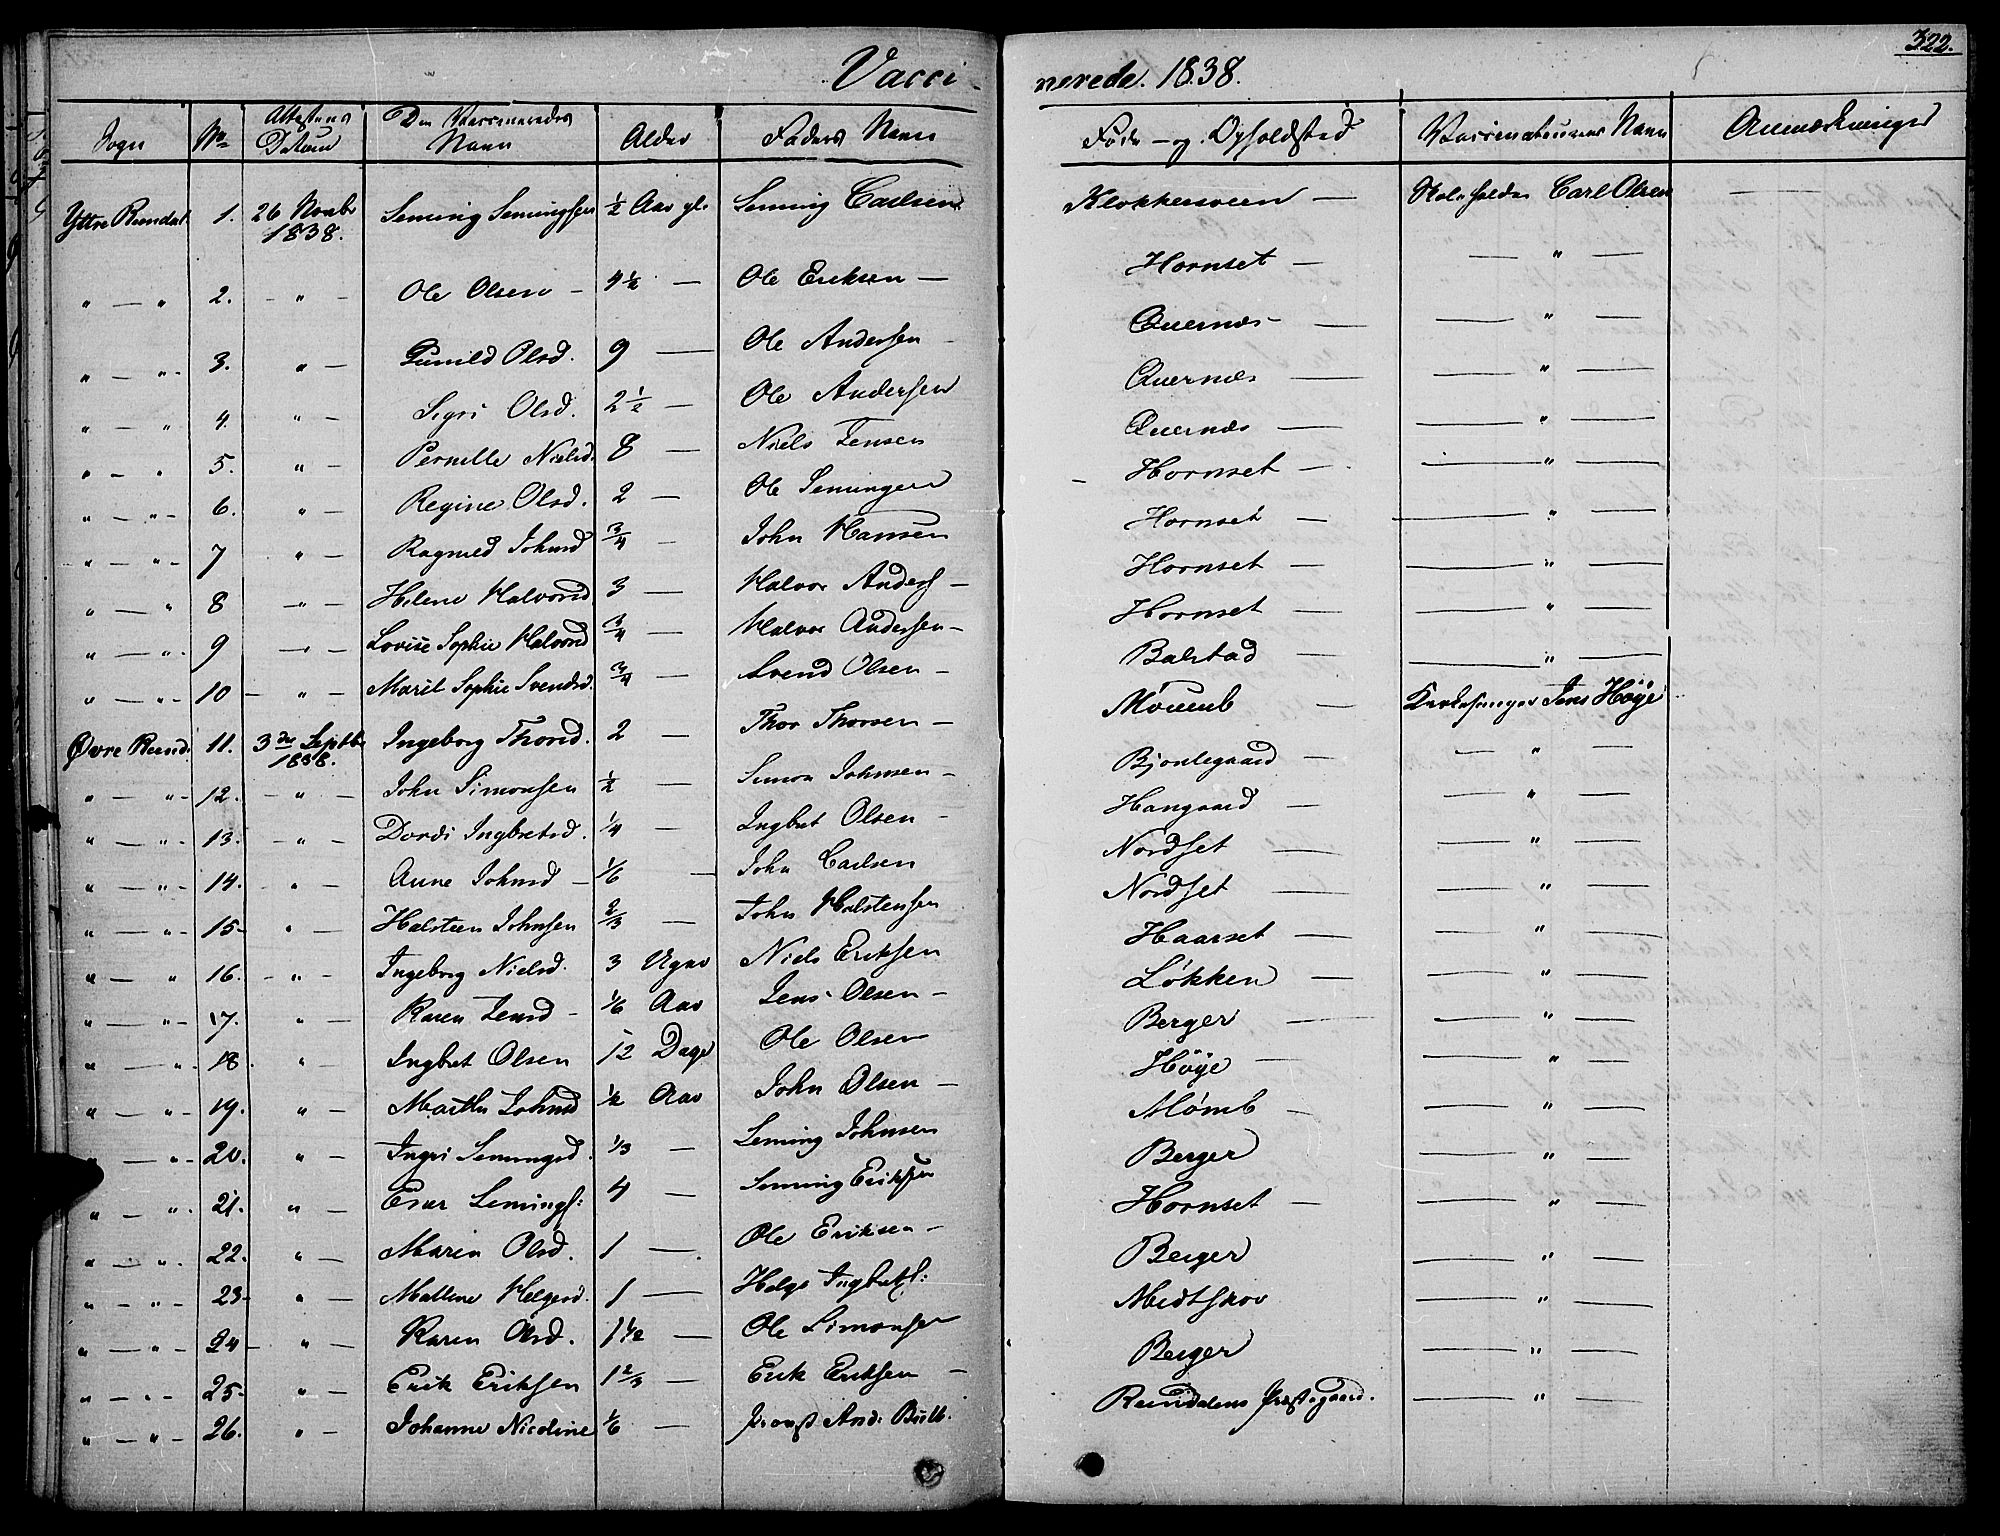 322.
Vaccinerede. 1838.
Sogn No Attestens Datum Den Vaccineredes Navn Alder Faders Navn Føde - og Opholdsted Vaccinateurens Navn Anmærkninger
Yttre Rendal 1. 26 Novbr 1838. Seming Semingsen ½ Aar gl. Seming Carlsen Klokkersveen — Carl Olsen —
" — " 2. - " - Ole Olsen - 4 ½ — Ole Eriksen — Hornset — — " —
" — " - 3. " - Gunild Olsd. 9 — Ole Andersen - Quernæs — — " —
" — " 4. " - Sigri Olsd. 2 ½ — Ole Andersen Quernæs — — " —
" — " 5. " - Pernille Nielsd. 8 — Niels Jensen Quernæs — — " —
" — " - 6. " - Regine Olsd. 2 — Ole Semingsen Hornset — — " —
" — " - 7 " - Ragnild Johnsd ¾ — John Hansen Hornset — — " —
" — " 8 - " - Helene Halvorsd 3 — Halvor Anders - Hornset — — " —
" — " - 9 - " - Lovise Sophie Halvorsd ¾ — Halvor Andersen - Hornset — — " —
" — " - 10 - " - Marit Sophie Svendsd. ¾ — Svend Olsen - Balstad — — " —
Øvre Rend. 11. 3die Septbr 1838. Ingeborg Thorsd. 2 — Thor Thorsen — Mömb — Kirkesanger Jens Höye
" — " - 12. - " - John Simonsen ½ — Simon Johnsen - Bjontegaard — — " —
" — " - 13. - " - Dordi Ingbretsd. ¼ — Ingbret Olsen - Haugaard — — " —
" — " - 14. - " - Anne Johnsd - 1/6 — John Carlsen Nordset — — " —
" — " - 15 - " - Halsteen Johnsen 2/3 — John Halstensen Nordset — — " —
" — " 16. - " - Ingeborg Nielsd. 3 Uger Niels Eriksen Haarset — — " —
" — " - 17. " - Karen Jensd - 1/6 Aar Jens Olsen - Løkken — — " —
" — " - 18. " - Ingbret Olsen 12 Dage Ole Olsen Berger — — " —
" — " - 19. " - Marthe Johnsd ½ Aar John Olsen — Høye — — " —
" — " - 20. " - Ingri Semingsd. 1/3 — Seming Johnsen Mömb — — " —
" — " - 21. " - Semings: 4 — Seming Eriksen Berger — " —
" — " - 22. " - Maren Olsd. 1 — Ole Eriksen - Hornset — — " —
" — " - 23 - " - Mattine Helgesd. 1 — Helge Ingbrets: Berger — " —
" — " - 24 - " - Karen Olsd. 1 ½ — Ole Simonsen Medtskov — " —
" — " - 25 - " - Erik Eriksen 1 2/3 — Erik Eriksen — Berger — " —
" — " - 26. " - Johanne Nicoline 1/6 — Provst And. Bull. Rendalens Præstegaard. — " —